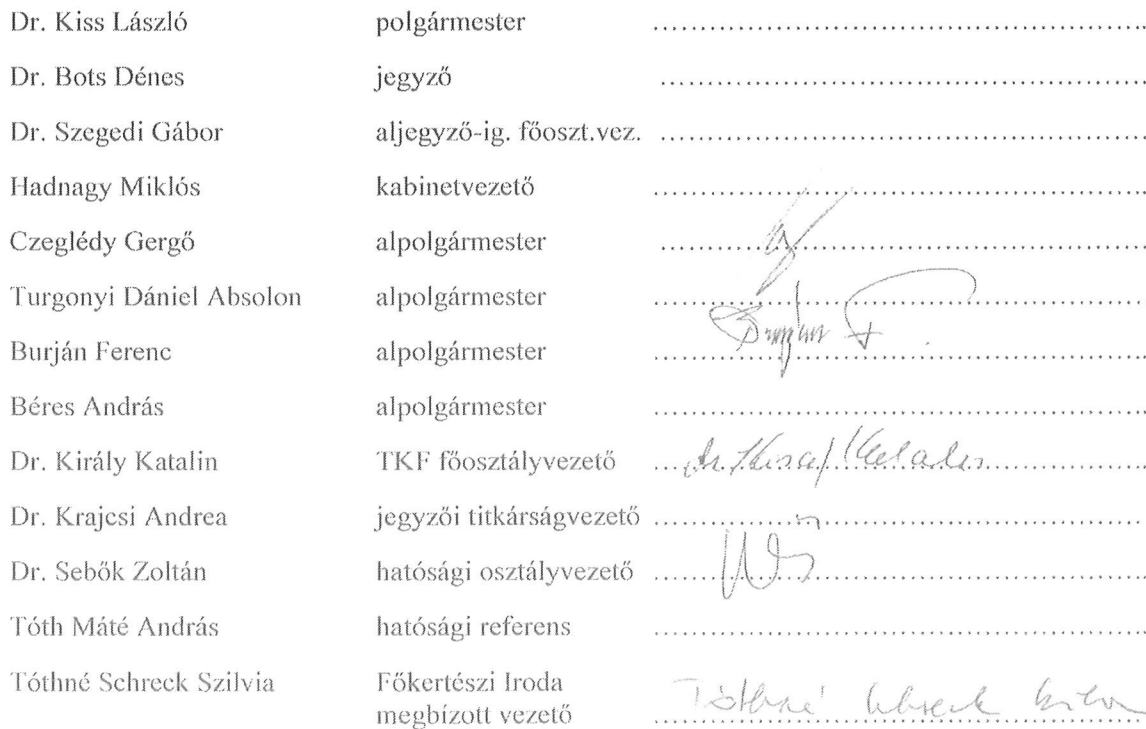 Dr. Kiss László polgármester ..........
Dr. Bots Dénes jegyző ..........
Dr. Szegedi Gábor aljegyző-ig. főoszt.vez. ..........
Hadnagy Miklós kabinetvezető ..........
Czeglédy Gergő alpolgármester ..........
Turgonyi Dániel Absolon alpolgármester ..........
Burján Ferenc alpolgármester ..........
Béres András alpolgármester ..........
Dr. Király Katalin TKF főosztályvezető .......... dr. Király Katalin
Dr. Krajcsi Andrea jegyzői titkárságvezető ..........
Dr. Sebők Zoltán hatósági osztályvezető ..........
Tóth Máté András hatósági referens ..........
Tóthné Schreck Szilvia Főkertészi Iroda Tóthné Schreck Szilvia
megbízott vezető ..........